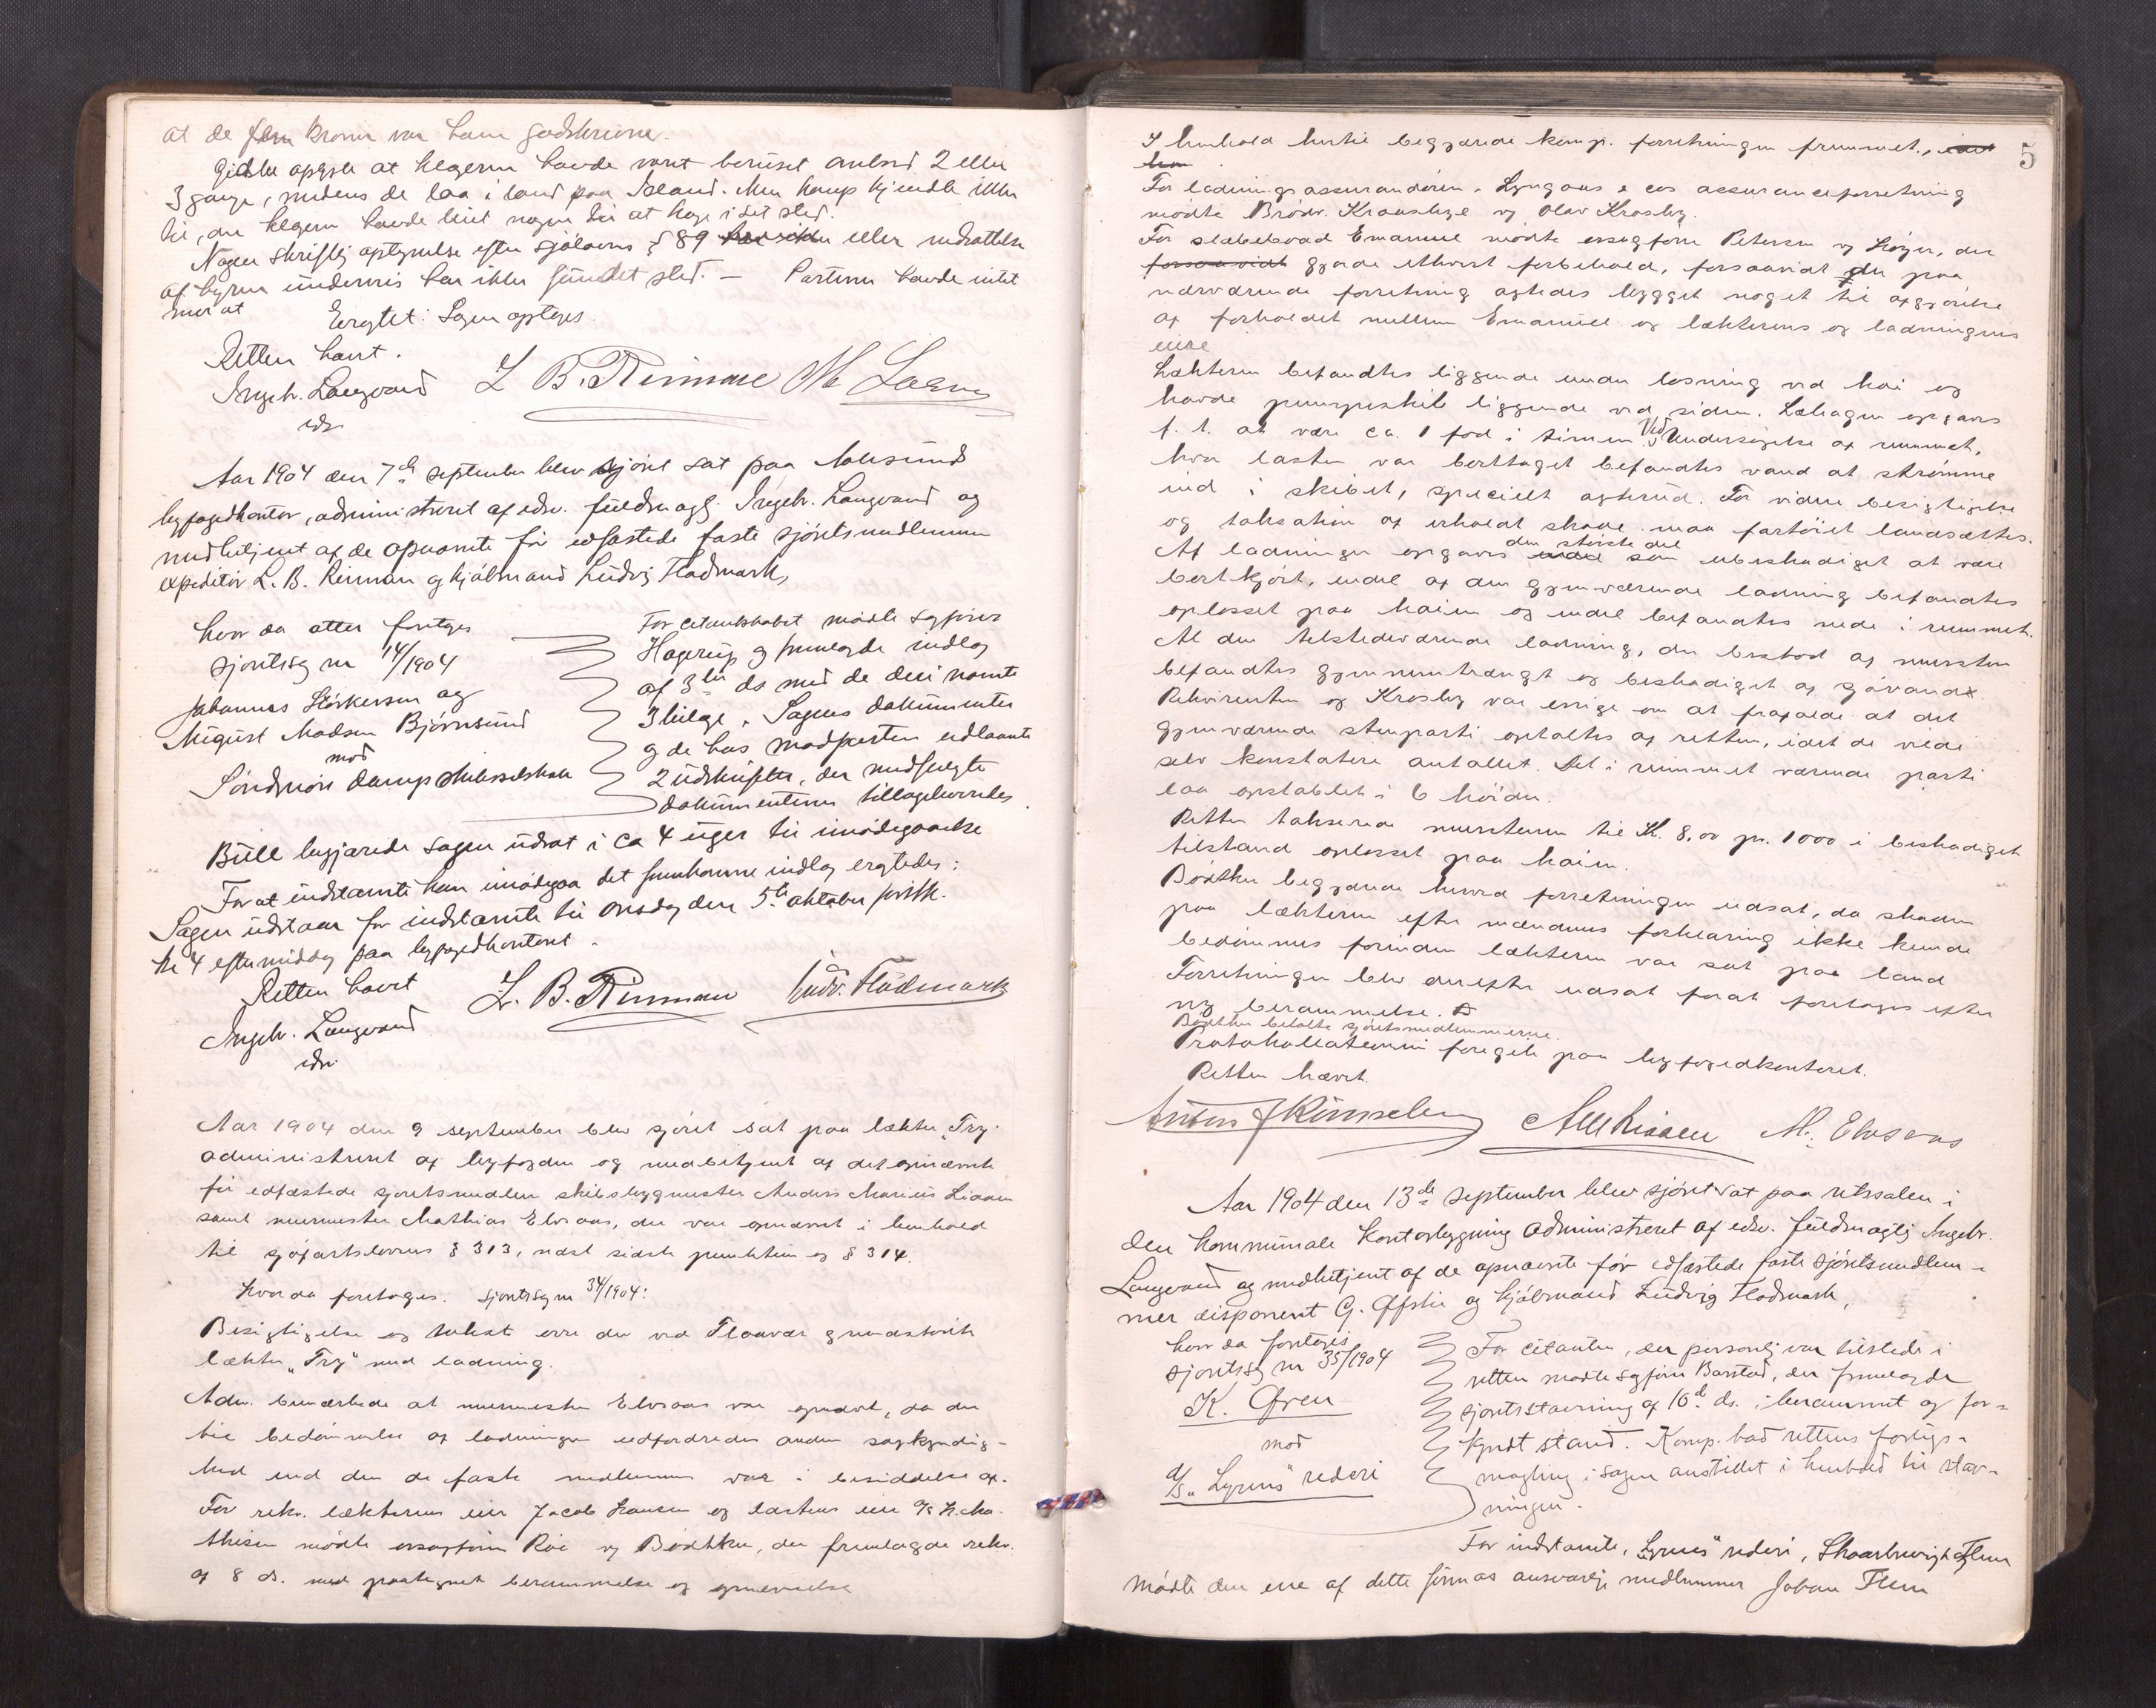 at de fem kroner var ham godskrevne.
Gidske oplyste at klageren havde været beruset ombord 2 eller
3 gange, medens de laa i land paa Island. Men komp kjendte ikke
til, om klageren havde leiet nogen til at hoge i sit sted.
Nogen skriftlig optegnelse efter sjölovens § 89 eller nedsættelse
af hyren underveis har ikke fundet sted. — Parterne havde intet
mer at Ergtet: Sagen optages.
Retten hævet.
Ingebr. Langvand L. B. Rinnan M
eds.
Aar 1904 den 7de september blev sjöret sat paa Aalesunds
byfogedkontor, administreret af edsv. fuldmægtig Ingebr. Langvand og
medbetjent af de opnævnte før edfæstede faste sjöretsmedlemmer
expeditör L. B. Rinnan og hjälmand Ludvig Flodmark,
hvor da atter foretoges
sjöretssag nr 14/1904
Johannes Störkersen og
August Madsen Björnsund
mod
Söndmöre dampskibsselskab
For citantskabet mödte sagförer
Hagerup og fremlagde indlæg
af 3die ds med de deri nævnte
3 bilage. Sagens dokumenter
og de hos modparten udlaante
2 udskrifter, der medfulgte
dokumenterne tilbageleveredes.
Bull begjærede sagen udsat i ca 4 uger til imödegaaelse
For at indstævnte kan imödegaa det fremkomne indlæg ergtedes:
Sagen udstaar for indstævnte til onsdag den 5te oktober førstk.
kl 4 eftermiddag paa byfogedkontoret.
Retten hævet
Ingebr. Langvand L. B. Rinnan Ludv. Flodmark
eds.
Aar 1904 den 9 september blev sjöret sat paa lægter "Try"
administreret af byfogden og medbetjent af det opnævnte
før edfæstede sjöretsmedlem skibsbygmester Anders Marius Liaaen
samt murmester Mathias Elvsaas, der var opnævnt i henhold
til sjöfartslovens § 313, næst sidste punktum og § 314.
Hvor da foretoges. sjöretssag nr 34/1904:
Besigtigelse og takst over den ved Flaavær grundstödte
lægter "Try" med ladning.
Adm. bemærkede at murmester Elvsaas var opnævnt, da der
til bedömmelse af ladningen udfordredes anden sagkyndig-
hed end den de faste medlemmer var i besiddelse af.
For rekv. lægterens eier Jacob Hansen og lastens eier A/S H. Ma-
thisen mödte orsagförer Roe og Bödtker, der fremlagde rekv.
af 8 ds. med paategnet berammelse og opnævnelse
5
I henhold hertil begjærede komp. forretningen fremmet., idet
han
For ladningsassurandören, Lyngaas & cos assuranceforretning
mödte Brödr. Kraasbye og Olav Krosby.
For slæbebaad Emanuel mödte orsagförer Petersen og Höyer, der
forsaavidt gjorde ethvert forbehold, forsaavidt der paa
nærværende forretning agtedes bygget noget til afgjörelse
af forholdet mellem Emanuel og lækterens og ladningens
eiere
Lækteren befandtes liggende under losning ved kai og
havde pumpeskib liggende ved siden. Lækagen opgaves
f. t. at være ca. 1 fod i timen. Ved Undersögelse af rummet,
hvor lasten var borttaget befandtes vand at strömme
ind i skibet, specielt agterud. For videre besigtigelse
og taksation af erholdt skade maa fartöiet landsættes.
Af ladningen opgaves den störste del som ubeskadiget at være
bortkjört, endel af den gjenværende ladning befandtes
oplosset paa kaien og endel befandtes nede i rummet.
Al den tilstedeværende ladning, der bestod af mursten
befandtes gjennemtrængt og beskadiget af sjövand.
Rekvirenten og Krosby var enige om at frafalde at det
gjenværende stenparti optaltes af retten, idet de vilde
selv konstatere antallet. Det i rummet værende parti
laa opstablet i 6 höider.
Retten takserede murstenen til K. 8,00 pr. 1000 i beskadiget
tilstand oplosset paa kaien.
Bödtker begjærede herved forretningen udsat, da skaden
paa lækteren efter mændenes forklaring ikke kunde
bedömmes forinden lækteren var sat paa land
Forretningen blev derefter udsat forat foretages efter
ny berammelse.
Bödtker betalte sjöretsmedlemmerne.
Protokollationen foregik paa byfogedkontoret.
Retten hævet.
AMLiaaen M. Elvsaas
Aar 1904 den 13de september blev sjöret sat paa retssalen i
den kommunale kontorbygning administreret af edsv. fuldmægtig Ingebr.
Langvand og medbetjent af de opnævnte før edfæstede faste sjöretsmedlem-
mer disponent G. og hjälmand Ludvig Flodmark,
hvor da foretoges
sjöretssag nr 35/1904
K. Ofren
mod
A/S "Lyrens" rederi
For citanten, der personlig var tilstede i
retten mödte sagförer Barstad, der fremlagde
sjöretsstævning af 10de ds. i berammet og for-
kyndt stand. Komp. bad rettens forligs-
mægling i sagen anstillet i henhold til stæv-
ningen.
For indstævnte, "Lyrens" rederi, Skarbrevig & Flem
mödte den ene af dette firmas ansvarlige medlemmer Johan Flem